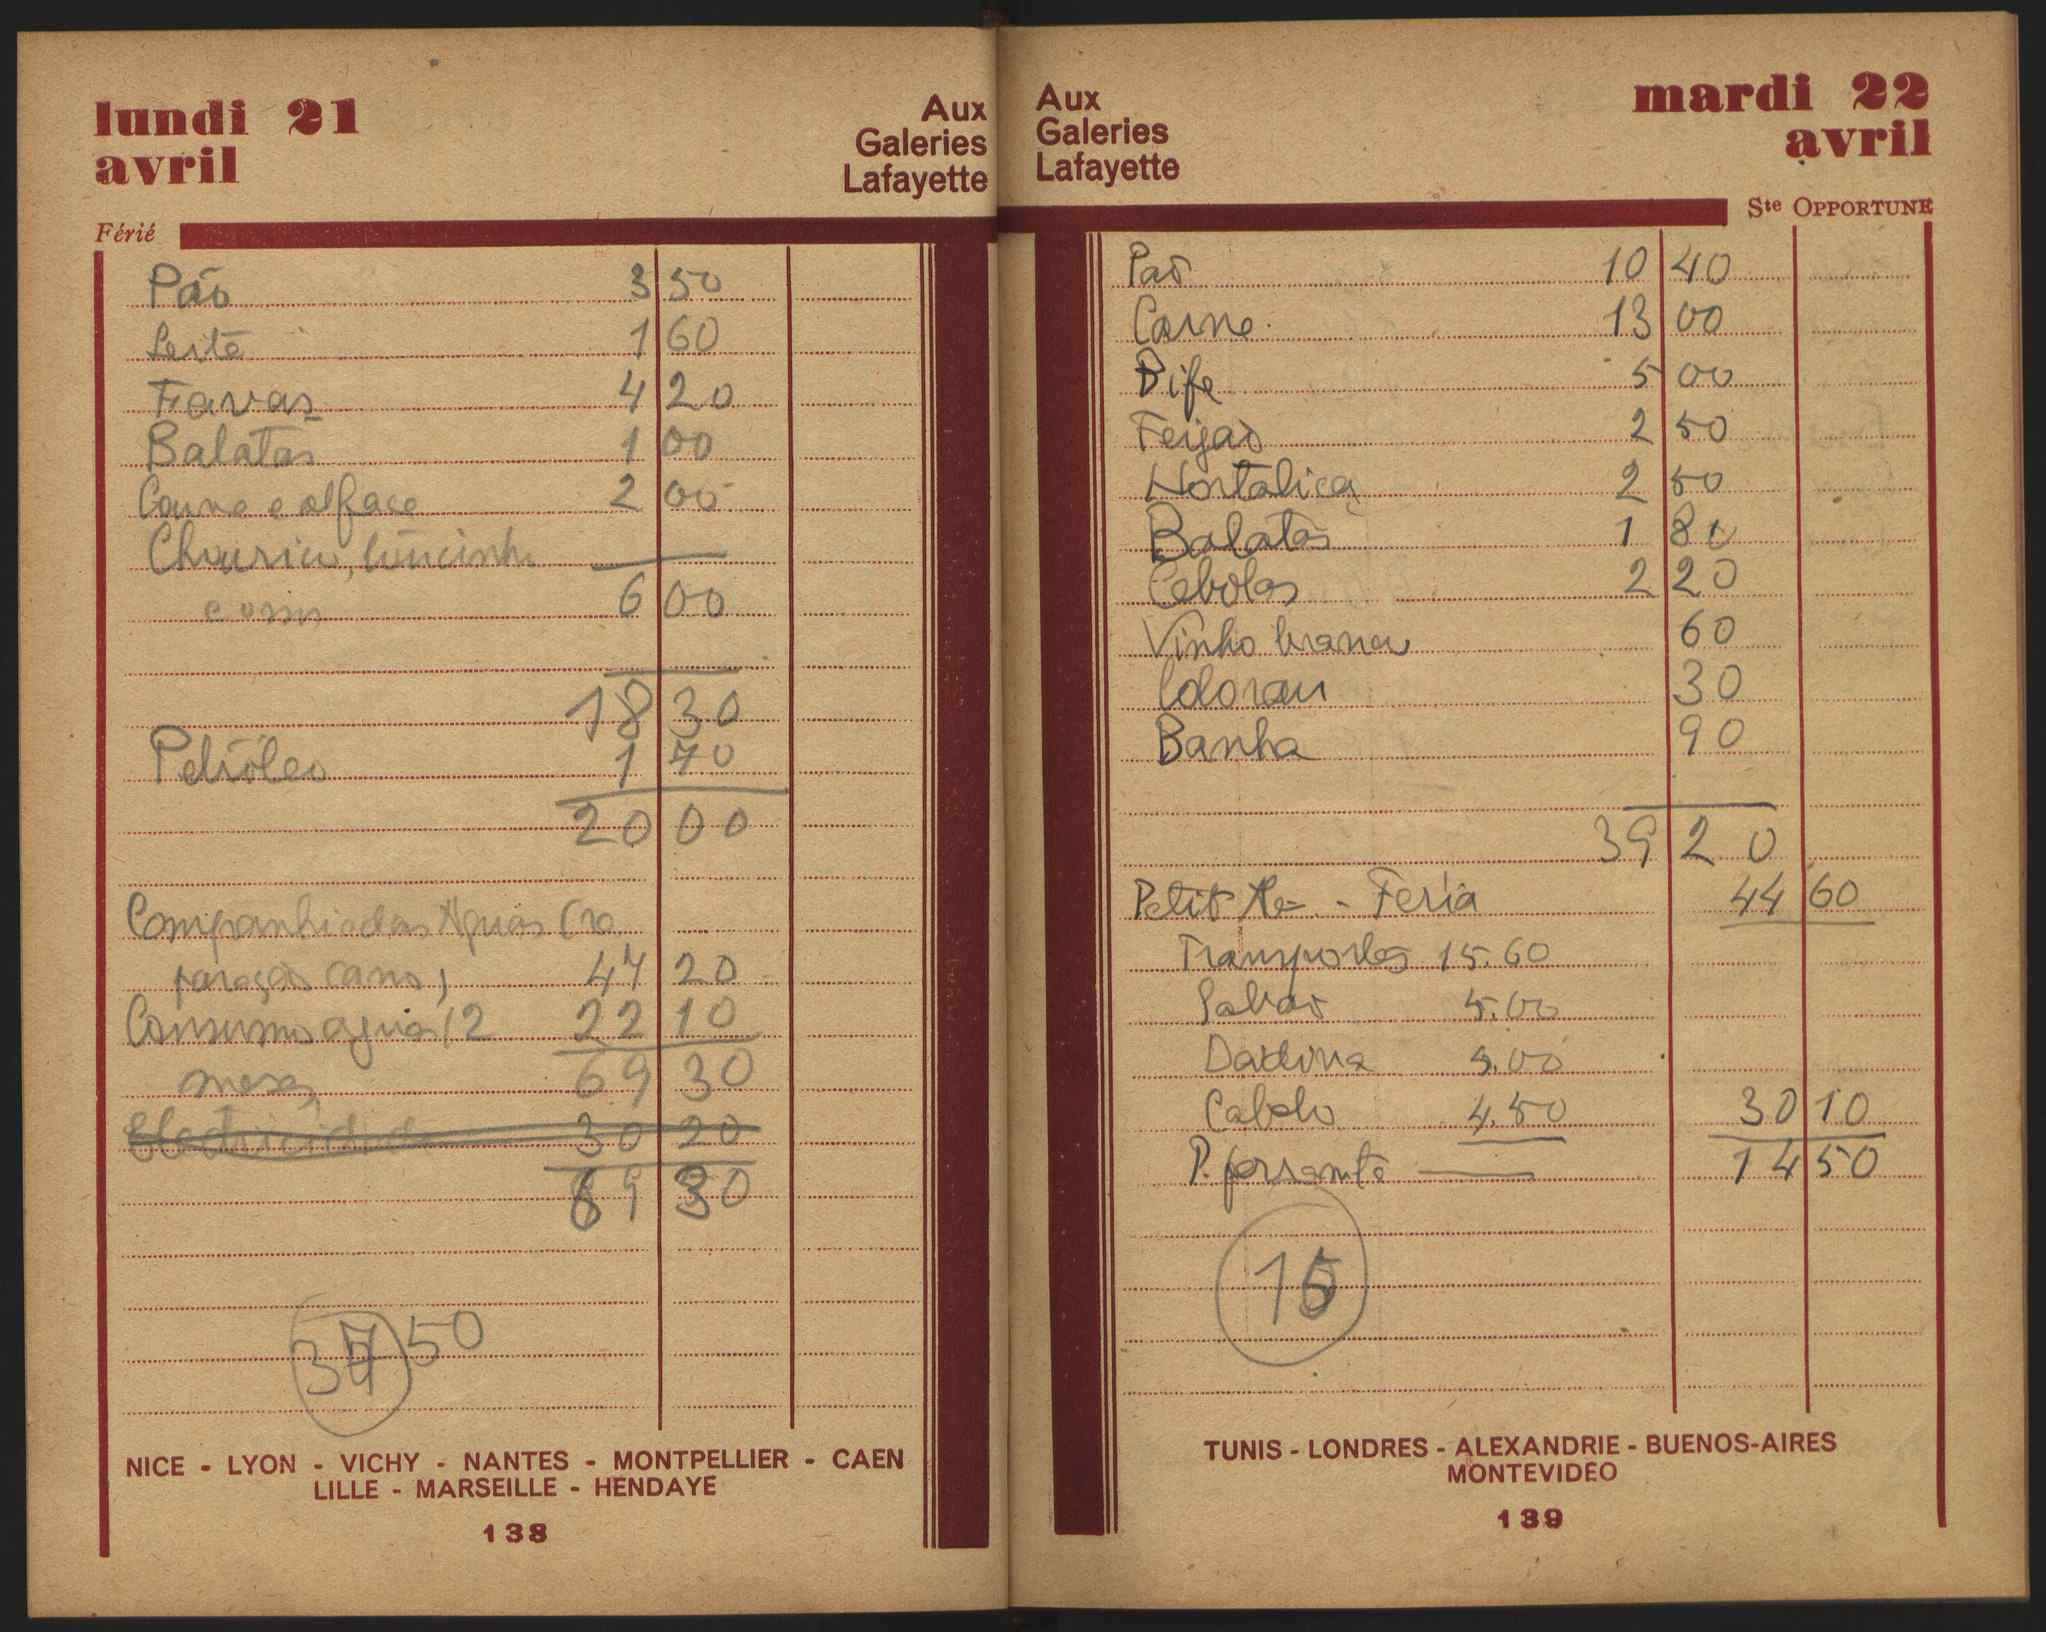 lundi 21
avril
Aux
Galeries
Lafayette
Férié
Pão 3 50
Leite 1 60
Favas 4 20
Batatas 1 00
Couve e alface 2 00
Chouriço, toucinho
e ovos 6 00
18 30
Petróleo 1 70
20 00
Companhia das Aguas (re
paração cano) 47 20
Consumo agua (2 22 10
meses 69 30
Electricidade 30 20
69 30
37 50
NICE - LYON - VICHY - NANTES - MONTPELLIER - CAEN
LILLE - MARSEILLE - HENDAYE
138
Aux
Galeries
Lafayette
mardi 22
avril
Ste OPPORTUNE
Pao 10 40
Carne 13 00
Bife 5 00
Feijao 2 50
Hortaliça 2 50
Batatas 1 80
Cebolas 2 20
Vinho branco 60
Colorau 30
Banha 90
39 20
Petit - Feria 44 60
Transportes 15.60
Sabão 5.00
5.00
Cabelo 4.50 30 10
P. 14 50
15
TUNIS - LONDRES - ALEXANDRIE - BUENOS-AIRES
MONTEVIDEO
139